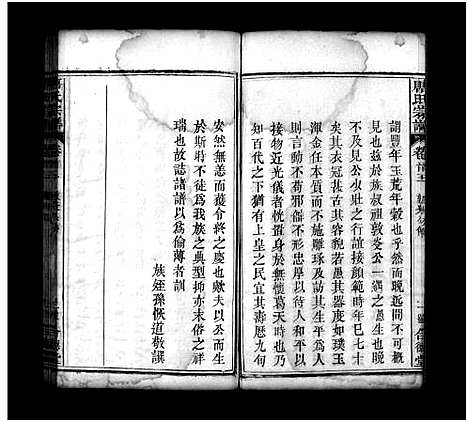 謂豐年玉荒年穀也乎然而晚近不可概
見也茲於族叔祖敦菴公一遇之愚也晚
不及見公少壯之行誼接顏範時年已七十
矣其衣冠甚古其容貌若愚其器度如璞玉
渾金任本質而不施雕琢及訪其生平
則言動不苟邪僻不形忠厚以待人和平以
處物近光儀者恍置身於無懷葛天時也乃
知百代之下猶有上皇之民宜其壽歷九旬
安然無恙而獲令終之慶也歟夫以公而生
於斯時不徒為我族之典型抑亦末俗之祥
瑞也故誌諸譜以為偷薄者訓
族姪孫恢道敬譔